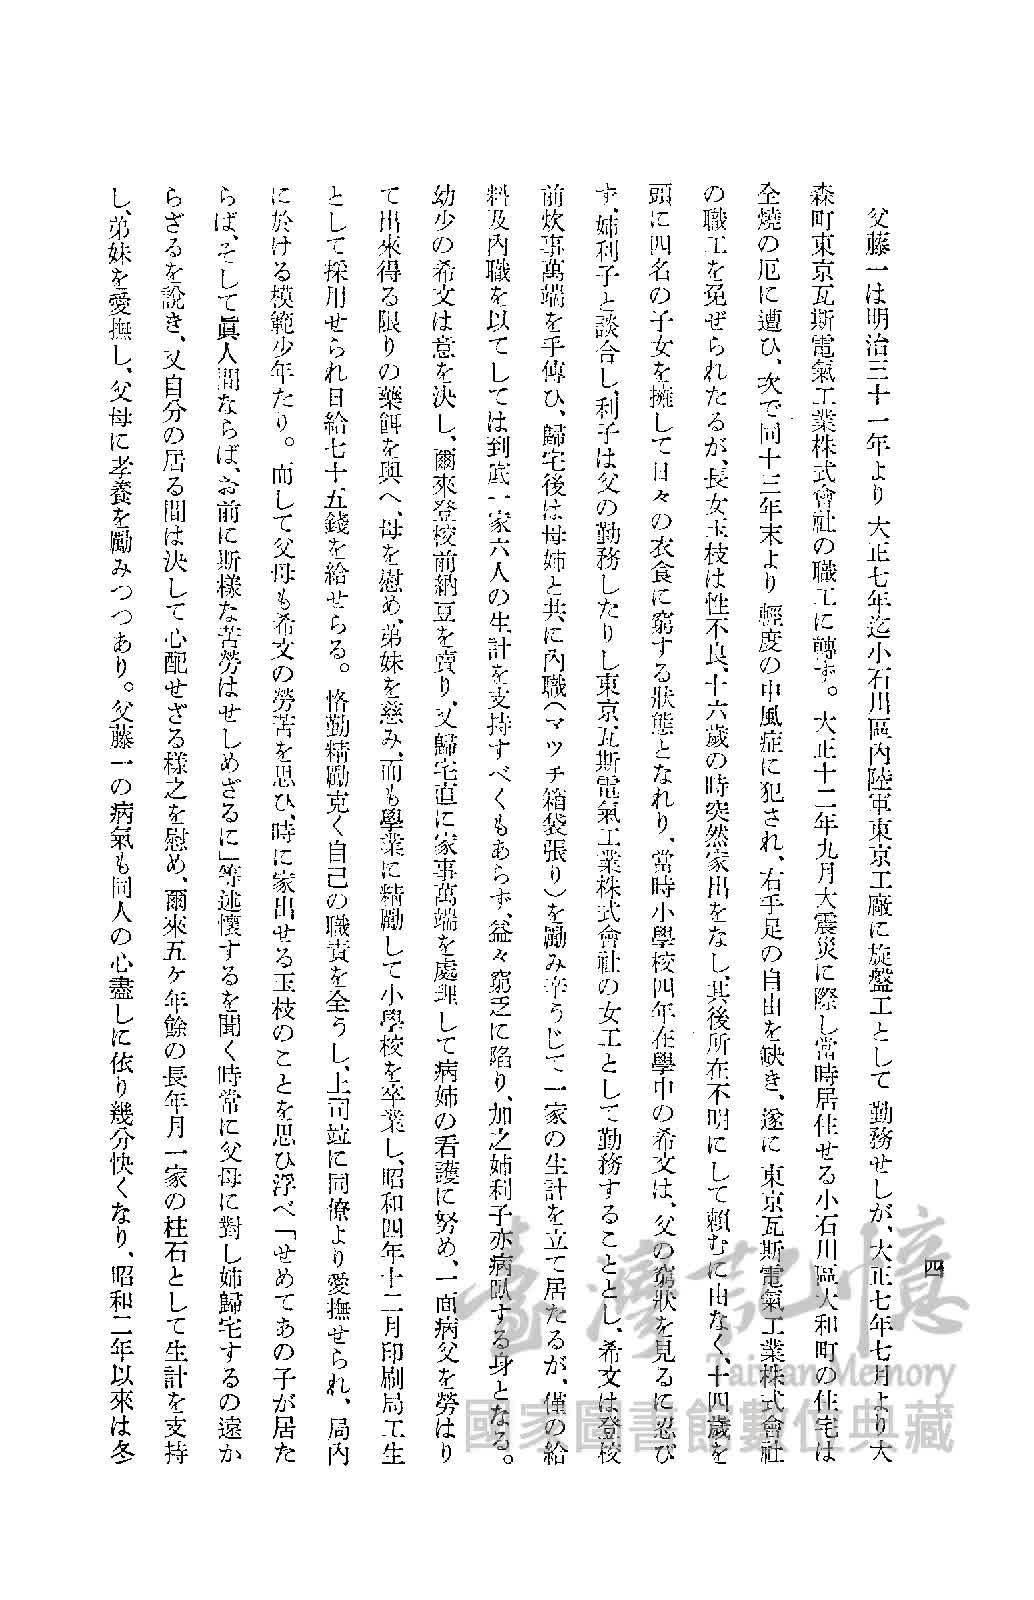 四
父藤一は明治三十一年より大正七年迄小石川區內陸軍東京工廠に旋盤工として勤務せしが、大正七年七月より大
森町東京瓦斯電氣工業株式會社の職工に轉ず。大正十二年九月大震災に際し當時居住せる小石川區大和町の住宅は
全燒の厄に遭ひ、次で同十三年末より輕度の中風症に犯され、右手足の自由を缺き、遂に東京瓦斯電氣工業株式會社
の職工を免ぜられたるが、長女玉枝は性不良、十六歲の時突然家出をなし、其後所在不明にして賴むに由なく、十四歲を
頭に四名の子女を擁して日々の衣食に窮する狀態となれり、當時小學校四年在學中の希文は、父の窮狀を見るに忍び
ず、姉利子と談合し、利子は父の勤務したりし東京瓦斯電氣工業株式會社の女工として勤務することとし、希文は登校
前炊事萬端を手傳ひ、歸宅後は母姉と共に內職(マツチ箱袋張り)を勵み辛うじて一家の生計を立て居たるが、僅の給
料及內職を以てしては到底一家六人の生計を支持すべくもあらず、益々窮乏に陷り、加之姉利子亦病臥する身となる。
幼少の希文は意を決し、爾來登校前納豆を賣り、又歸宅直に家事萬端を處理して病姉の看護に努め、一面病父を勞はり
て出來得る限りの藥餌を與へ、母を慰め、弟妹を慈み、而も學業に精勵して小學校を卒業し、昭和四年十二月印刷局工生
として採用せられ日給七十五錢を給せらる。恪勤精勵克く自己の職責を全うし、上司竝に同僚より愛撫せられ、局內
に於ける模範少年たり。而して父母も希文の勞苦を思ひ、時に家出せる玉枝のことを思ひ浮べ「せめてあの子が居た
らば、そして眞人間ならば、お前に斯樣な苦勞はせしめざるに」等述懷するを聞く時常に父母に對し姉歸宅するの遠か
らざるを說き、又自分の居る間は決して心配せざる樣之を慰め、爾來五ケ年餘の長年月一家の柱石として生計を支持
し、弟妹を愛撫し、父母に孝養を勵みつつあり。父藤一の病氣も同人の心盡しに依り幾分快くなり、昭和二年以來は冬
臺灣記憶
Taiwan Memory
國家圖書館數位典藏